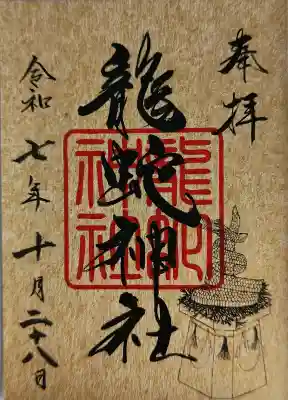 奉拝
龍蛇神社
龍蛇神社
令和七年十月二十八日